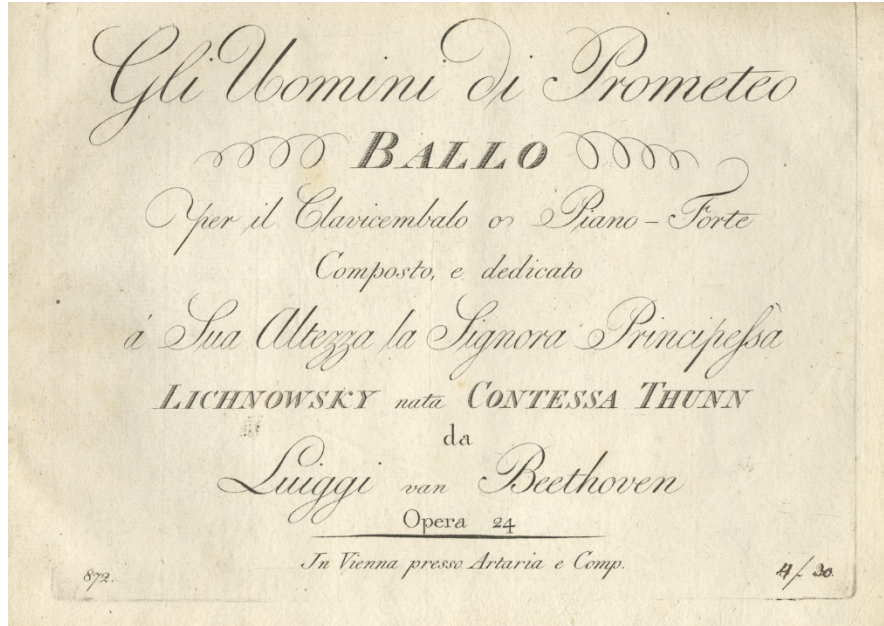 Gli Uomini di Prometeo
BALLO
per il Clavicembalo o Piano-Forte
Composto, e dedicato
á Sua Altezza la Signora Principeſsa
LICHNOWSKY nata CONTESSA THUNN
da
Luiggi van Beethoven
Opera 24
In Vienna presso Artaria e Comp.
872. 4/ 20.